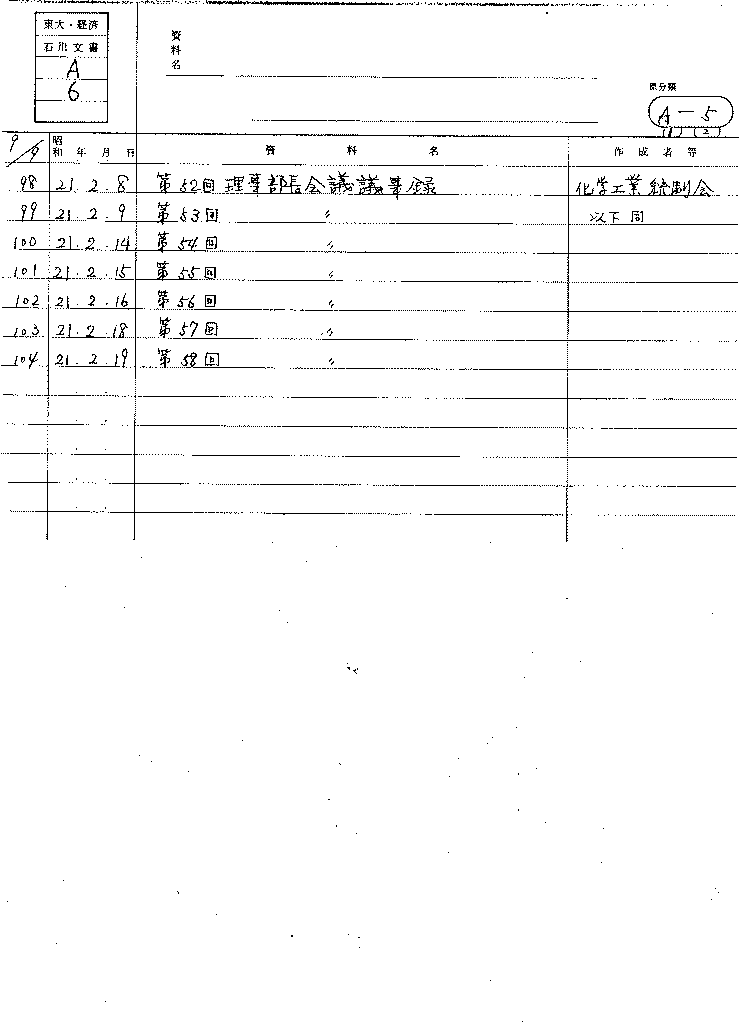 東大・経済
石川文書
A
6
資料名
原分類
A-5
(1)(2)
9/9 昭和 年 月 日 資料名 作成者等
98 21.2.8 第52回理事部長会議議事録 化学工業統制会
99 21.2.9 第53回 〃 以下同
100 21.2.14 第54回 〃
101 21.2.15 第55回 〃
102 21.2.16 第56回 〃
103 21.2.18 第57回 〃
104 21.2.19 第58回 〃